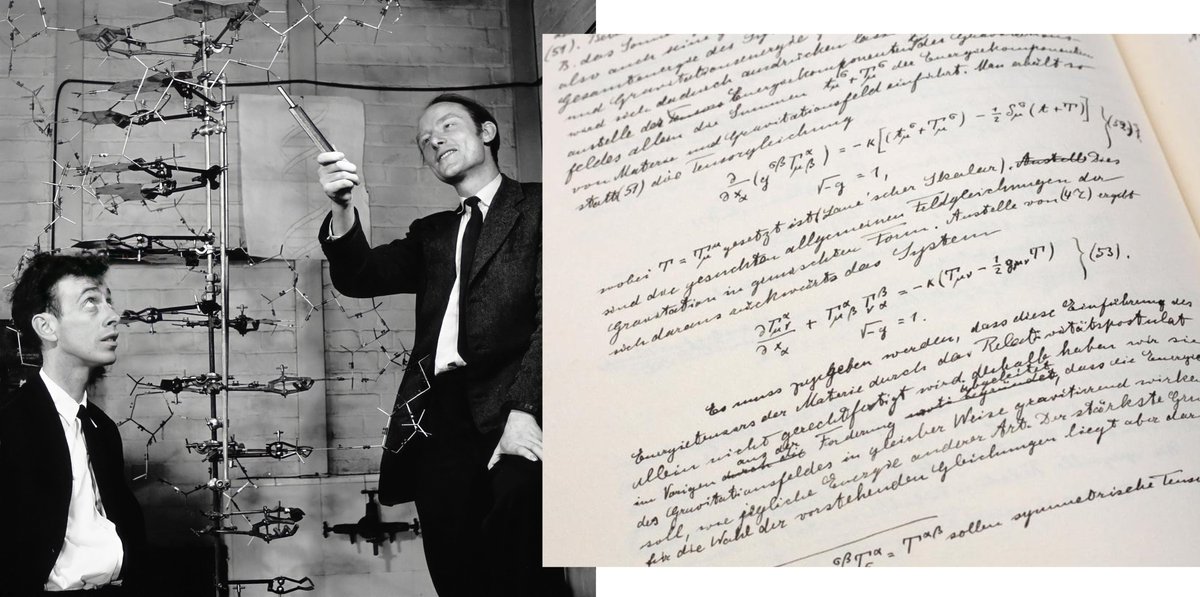 B. das
also auch seine
Gesamtenergie des
und Gravitationsenergie
wird sich dadurch ausdrücken
anstelle der Energiekomponenten des Gravitations-
feldes allein die Summen t_μ^σ + T_μ^σ der Energiekomponenten
von Materie und Gravitationsfeld einführt. Man erhält so
statt (51) die Tensorgleichung
∂/∂x_α (g^{σβ} Γ_{μβ}^α) = −κ[(t_μ^σ + T_μ^σ) − ½ δ_μ^σ (t + T)] } (52)
√−g = 1,
wobei T = T_μ^μ gesetzt ist (Laue'scher Skalar). Dies
sind die gesuchten allgemeinen Feldgleichungen der
Gravitation in gemischter Form. Anstelle von (47) ergibt
sich daraus rückwärts das System
∂Γ_{μν}^α/∂x_α + Γ_{μβ}^α Γ_{να}^β = −κ(T_{μν} − ½ g_{μν} T) } (53).
√−g = 1.
Es muss zugegeben werden, dass diese Einführung des
Energietensors der Materie durch das Relativitätspostulat
allein nicht gerechtfertigt wird, deshalb haben wir sie
im Vorigen aus der Forderung abgeleitet, dass die Energie
des Gravitationsfeldes in gleicher Weise gravitierend wirken
soll, wie jegliche Energie anderer Art. Der stärkste
für die Wahl der vorstehenden Gleichungen liegt aber
g^{σβ} T_σ^α = T^{αβ} sollen symmetrische